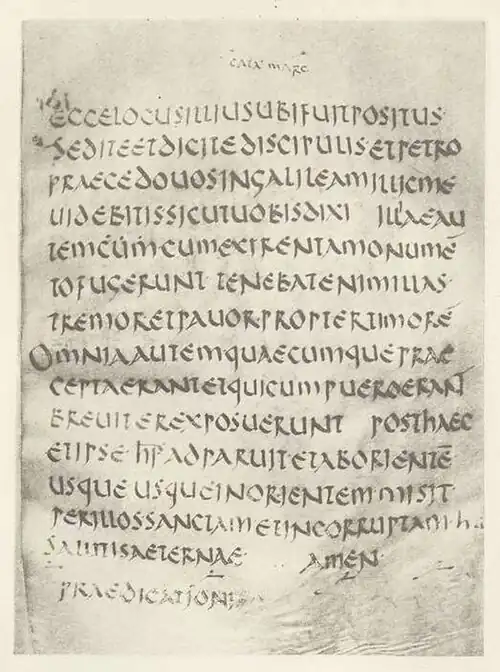 CATA MARC
ECCE LOCUS ILLIUS UBI FUIT POSITUS
SED ITE ET DICITE DISCIPULIS ET PETRO
PRAECEDO UOS IN GALILEAM ILLIC ME
UIDEBITIS SICUT UOBIS DIXI ILLAE AU
TEM CUM CUM EXIRENT A MONUMĒ
TO FUGERUNT TENEBAT ENIM ILLAS
TREMOR ET PAUOR PROPTER TIMORĒ
OMNIA AUTEM QUAECUMQUE PRAE
CEPTA ERANT ET QUI CUM PUERO ERANT
BREUITER EXPOSUERUNT POSTHAEC
ET IPSE ADPARUIT ET AB ORIENTĒ
USQUE USQUE IN ORIENTEM MISIT
PER ILLOS SANCTAM ET INCORRUPTAM
SALUTIS AETERNAE AMEN
PRAEDICATIONIS